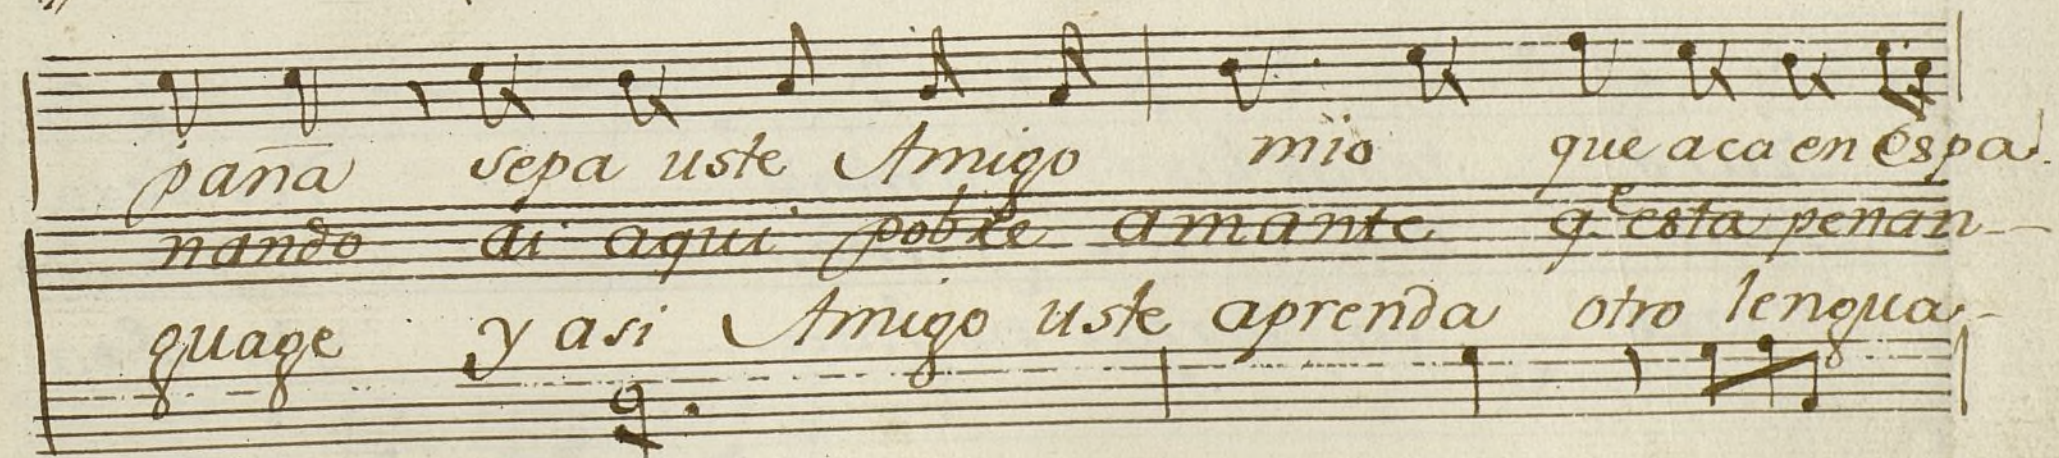 paña sepa uste Amigo mio que aca en espa
nando ai aqui pobre amante qe esta penan
guage y asi Amigo uste aprenda otro lengua